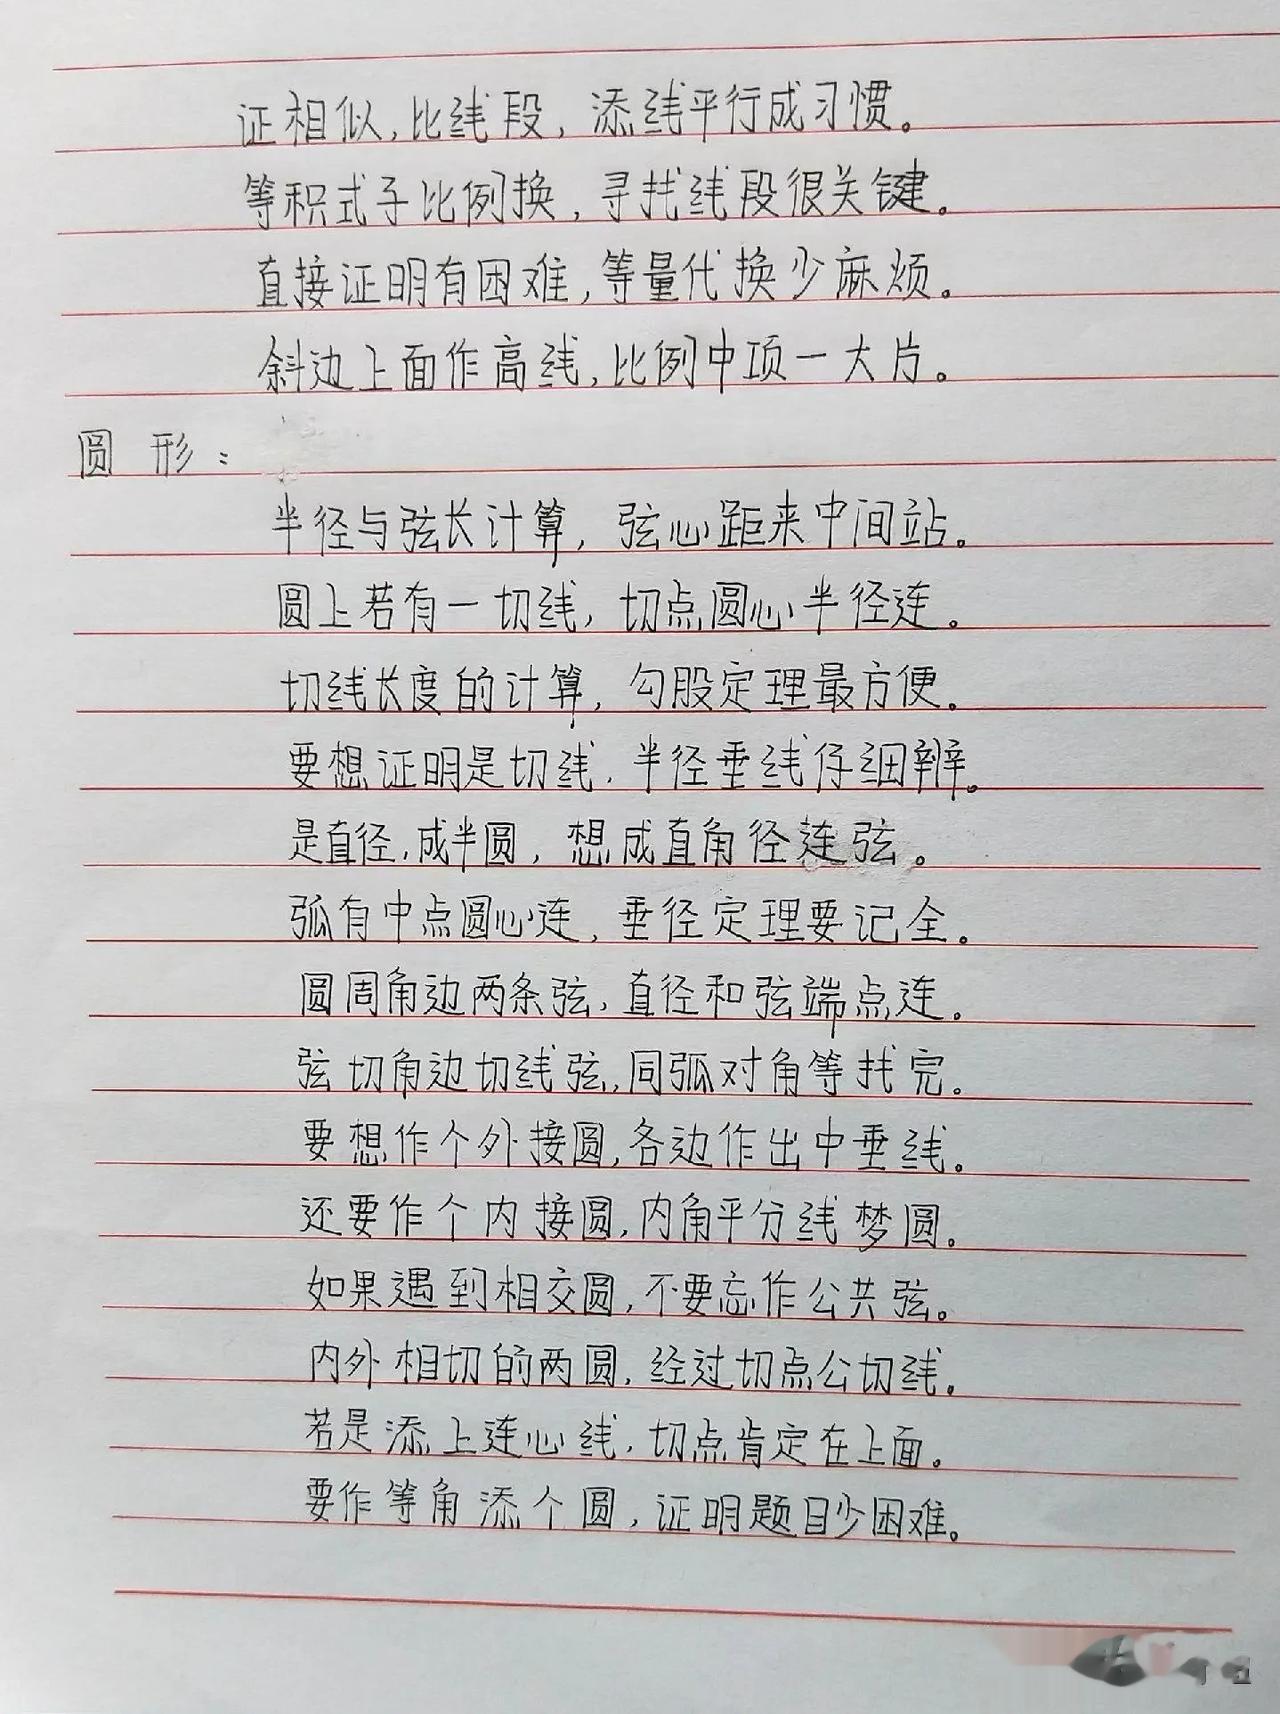 证相似,比线段,添线平行成习惯。
等积式子比例换,寻找线段很关键。
直接证明有困难,等量代换少麻烦。
斜边上面作高线,比例中项一大片。
圆形:
半径与弦长计算,弦心距来中间站。
圆上若有一切线,切点圆心半径连。
切线长度的计算,勾股定理最方便。
要想证明是切线,半径垂线仔细辨。
是直径,成半圆,想成直角径连弦。
弧有中点圆心连,垂径定理要记全。
圆周角边两条弦,直径和弦端点连。
弦切角边切线弦,同弧对角等找完。
要想作个外接圆,各边作出中垂线。
还要作个内接圆,内角平分线梦圆。
如果遇到相交圆,不要忘作公共弦。
内外相切的两圆,经过切点公切线。
若是添上连心线,切点肯定在上面。
要作等角添个圆,证明题目少困难。